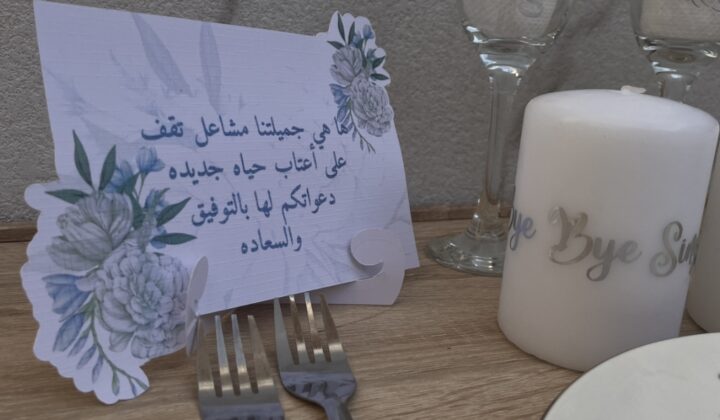 ها هي جميلتنا مشاعل تقف
على أعتاب حياه جديده
دعواتكم لها بالتوفيق
والسعاده
Bye Bye